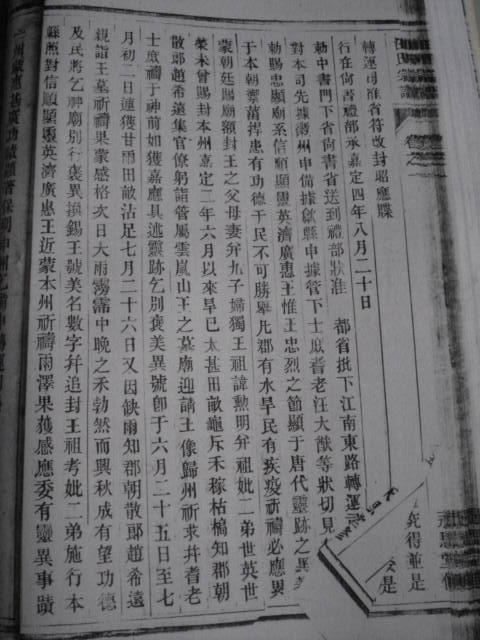 轉運司准省符改封昭應牒
行在尚書禮部承嘉定四年八月二十日
勑中書門下省尚書省送到禮部狀准　都省批下江南東路轉運
對本司先據徽州申備據歙縣申據管下士庶耆老汪大猷等狀切見
勑賜忠顯廟系信順顯靈英濟廣惠王惟王忠烈之節顯于唐代靈跡之異
于本朝禦菑捍患有功德于民不可勝舉凡郡有水旱民有疾疫祈禱必應累
蒙朝廷賜廟額封王之父母妻弁九子婦獨王祖諱勲明弁祖妣二弟世英世
榮未曾賜封本州嘉定二年六月以來旱巳太甚田畝龜斥禾稼枯槁知郡朝
散郎趙希遠集官僚躬詣管屬雲嵐山王之墓廟迎請王像歸州祈求幷耆老
士庶禱于神前如獲嘉應具述靈跡乞別褒美異號卽于六月二十五日至七
月初二日連獲甘雨田畝沾足七月二十六日又因缺雨知郡朝散郎趙希遠
親詣王墓祈禱果蒙感格次日大雨霶霈中晚之禾勃然而興秋成有望功德
及民將乞神廟別行褒異換錫王號美名數字幷追封王祖考妣二弟施行本
縣照對信順顯靈英濟廣惠王近蒙本州祈禱雨澤果獲感應委有靈異事蹟
究得並是
是